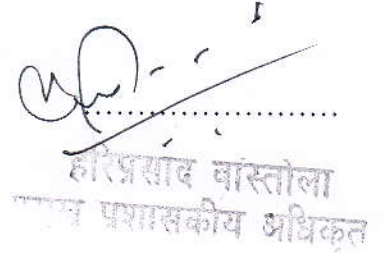 हरिप्रसाद वास्तोला
प्रशासकीय अधिकृत